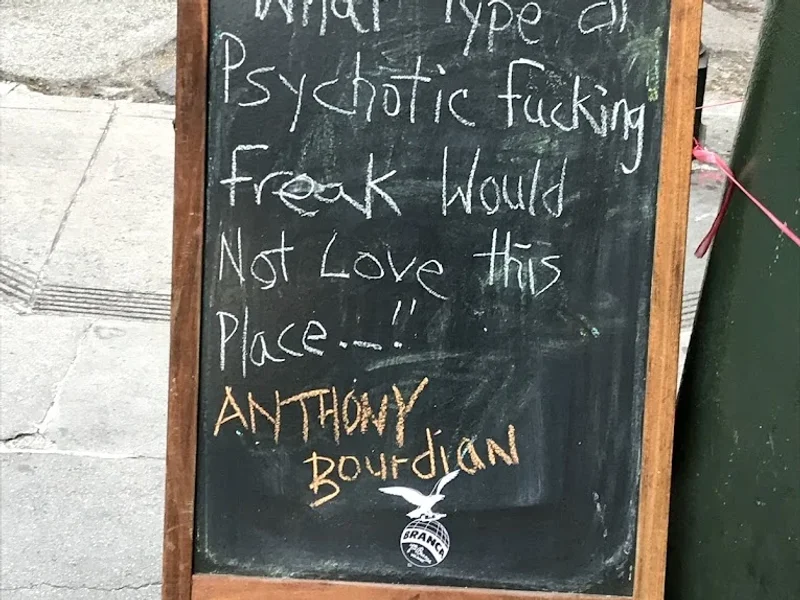 What Type of
Psychotic Fucking
Freak Would
Not Love this
Place...!!
ANTHONY
Bourdian
BRANCA